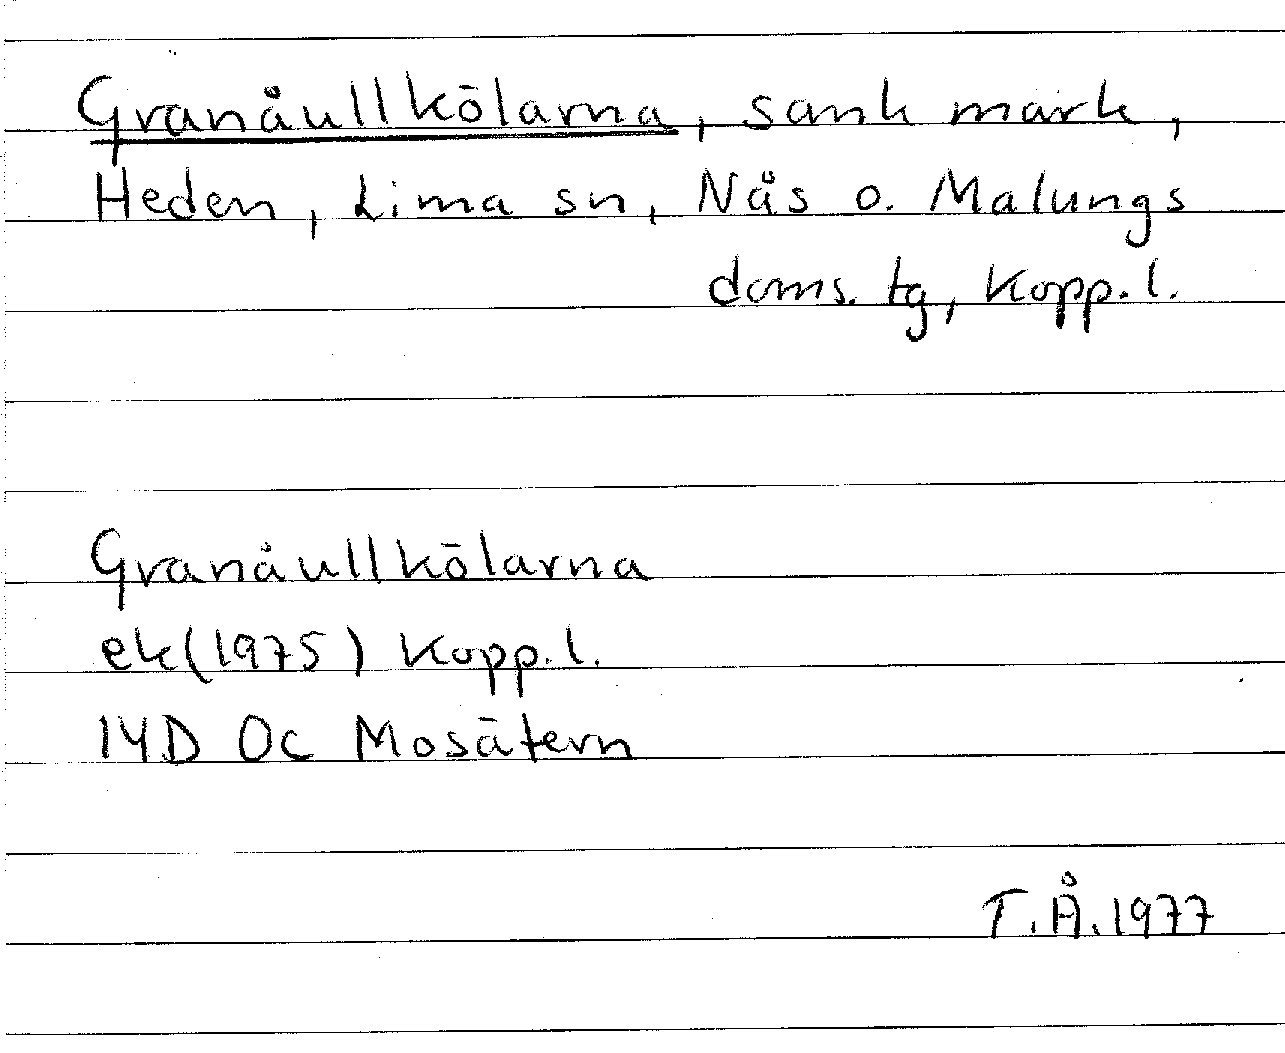 Granåullkölarna, sank mark,
Heden, Lima sn, Nås o. Malungs
doms. tg, Kopp. l.
Granåullkölarna
ek (1975) Kopp. l.
14D 0c Mosätern
T.Å. 1977